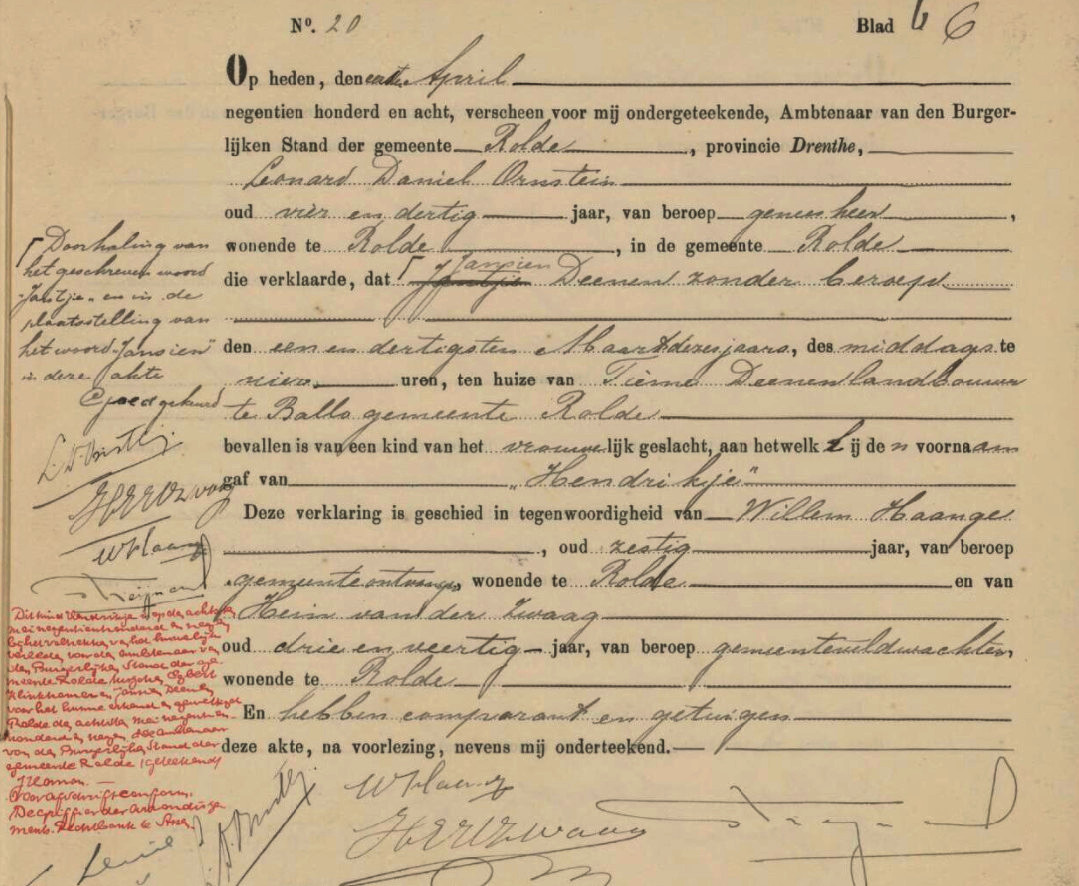 No. 20
Blad 6 6
Op heden, den eersten April
negentien honderd en acht, verscheen voor mij ondergeteekende, Ambtenaar van den Burger-
lijken Stand der gemeente Rolde, provincie Drenthe,
Leonard Daniel Ornstein
oud vier en dertig jaar, van beroep geneesheer,
wonende te Rolde, in de gemeente Rolde
die verklaarde, dat Γ Jantje Jansien Deenen zonder beroep
den een en dertigsten Maart dezes jaars, des middags te
uren, ten huize van Tieme Deenen landbouwer
te Ballo gemeente Rolde
bevallen is van een kind van het vrouwelijk geslacht, aan hetwelk hij den voornaam
gaf van „Hendrikje"
Deze verklaring is geschied in tegenwoordigheid van Willem Haange
, oud zestig jaar, van beroep
gemeenteontvanger, wonende te Rolde en van
Hein van der Zwaag
oud drie en veertig jaar, van beroep gemeenteveldwachter,
wonende te Rolde
En hebben comparant en getuigen
deze akte, na voorlezing, nevens mij onderteekend.
Γ Doorhaling van
het geschreven woord
„Jantje" en in de
plaatsstelling van
het woord „Jansien"
in deze akte
Goedgekeurd
L. D. Ornstein
H v d Zwaag
W Haange
Dit kind Hendrikje is op den achtsten
mei negentienhonderd en negen
bij het voltrekken van het huwelijk
voor den ambtenaar van
den Burgerlijken Stand der ge-
meente Rolde tusschen Egbert
Klinkhamer en Jansien Deenen
voor het hunne erkend en gewettigd
Rolde den achtsten mei negentien-
honderd en negen. De ambtenaar
van den Burgerlijken Stand der
gemeente Rolde (geteekend)
Voor afschrift conform,
De griffier der Arrondisse
ments-Rechtbank te Assen,
L. D. Ornstein
W Haange
H v d Zwaag